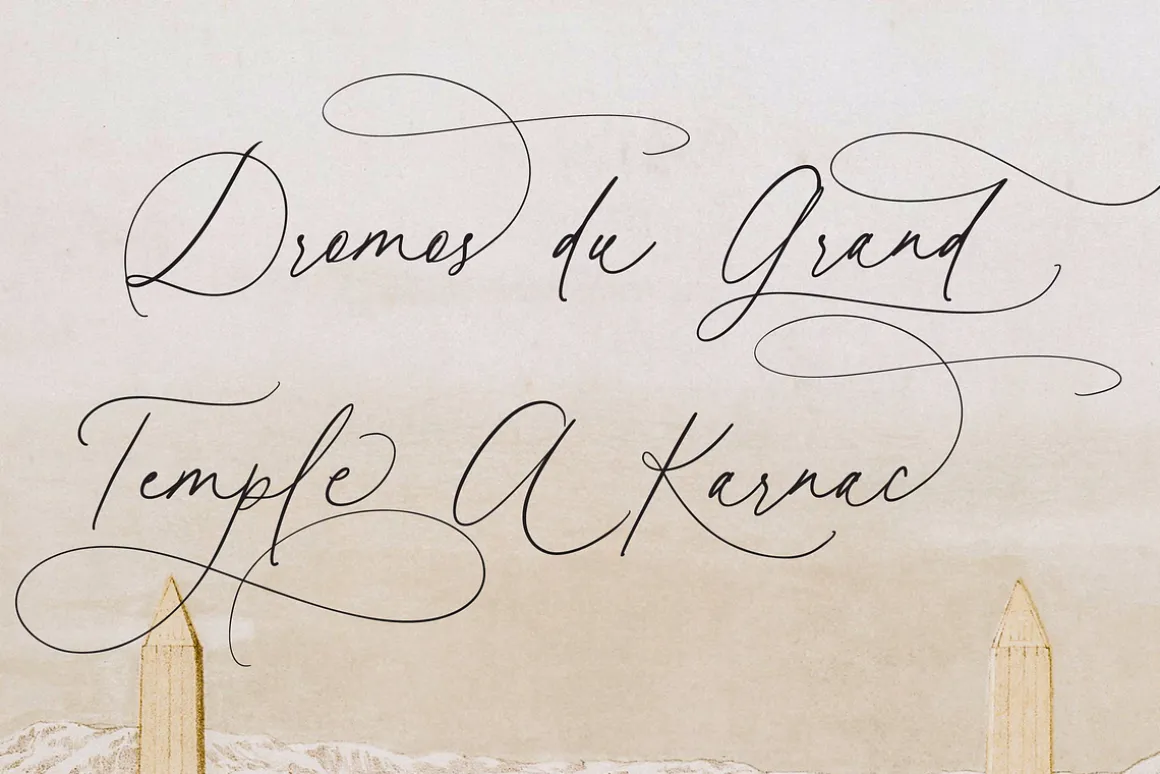 Dromos du Grand
Temple A Karnac